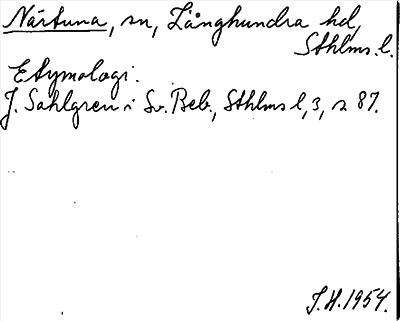 Närtuna, sn, Långhundra hd,
Sthlms l.
Etymologi.
J. Sahlgren i Sv. Beb., Sthlms l, 3, s 87.
J.H. 1954.